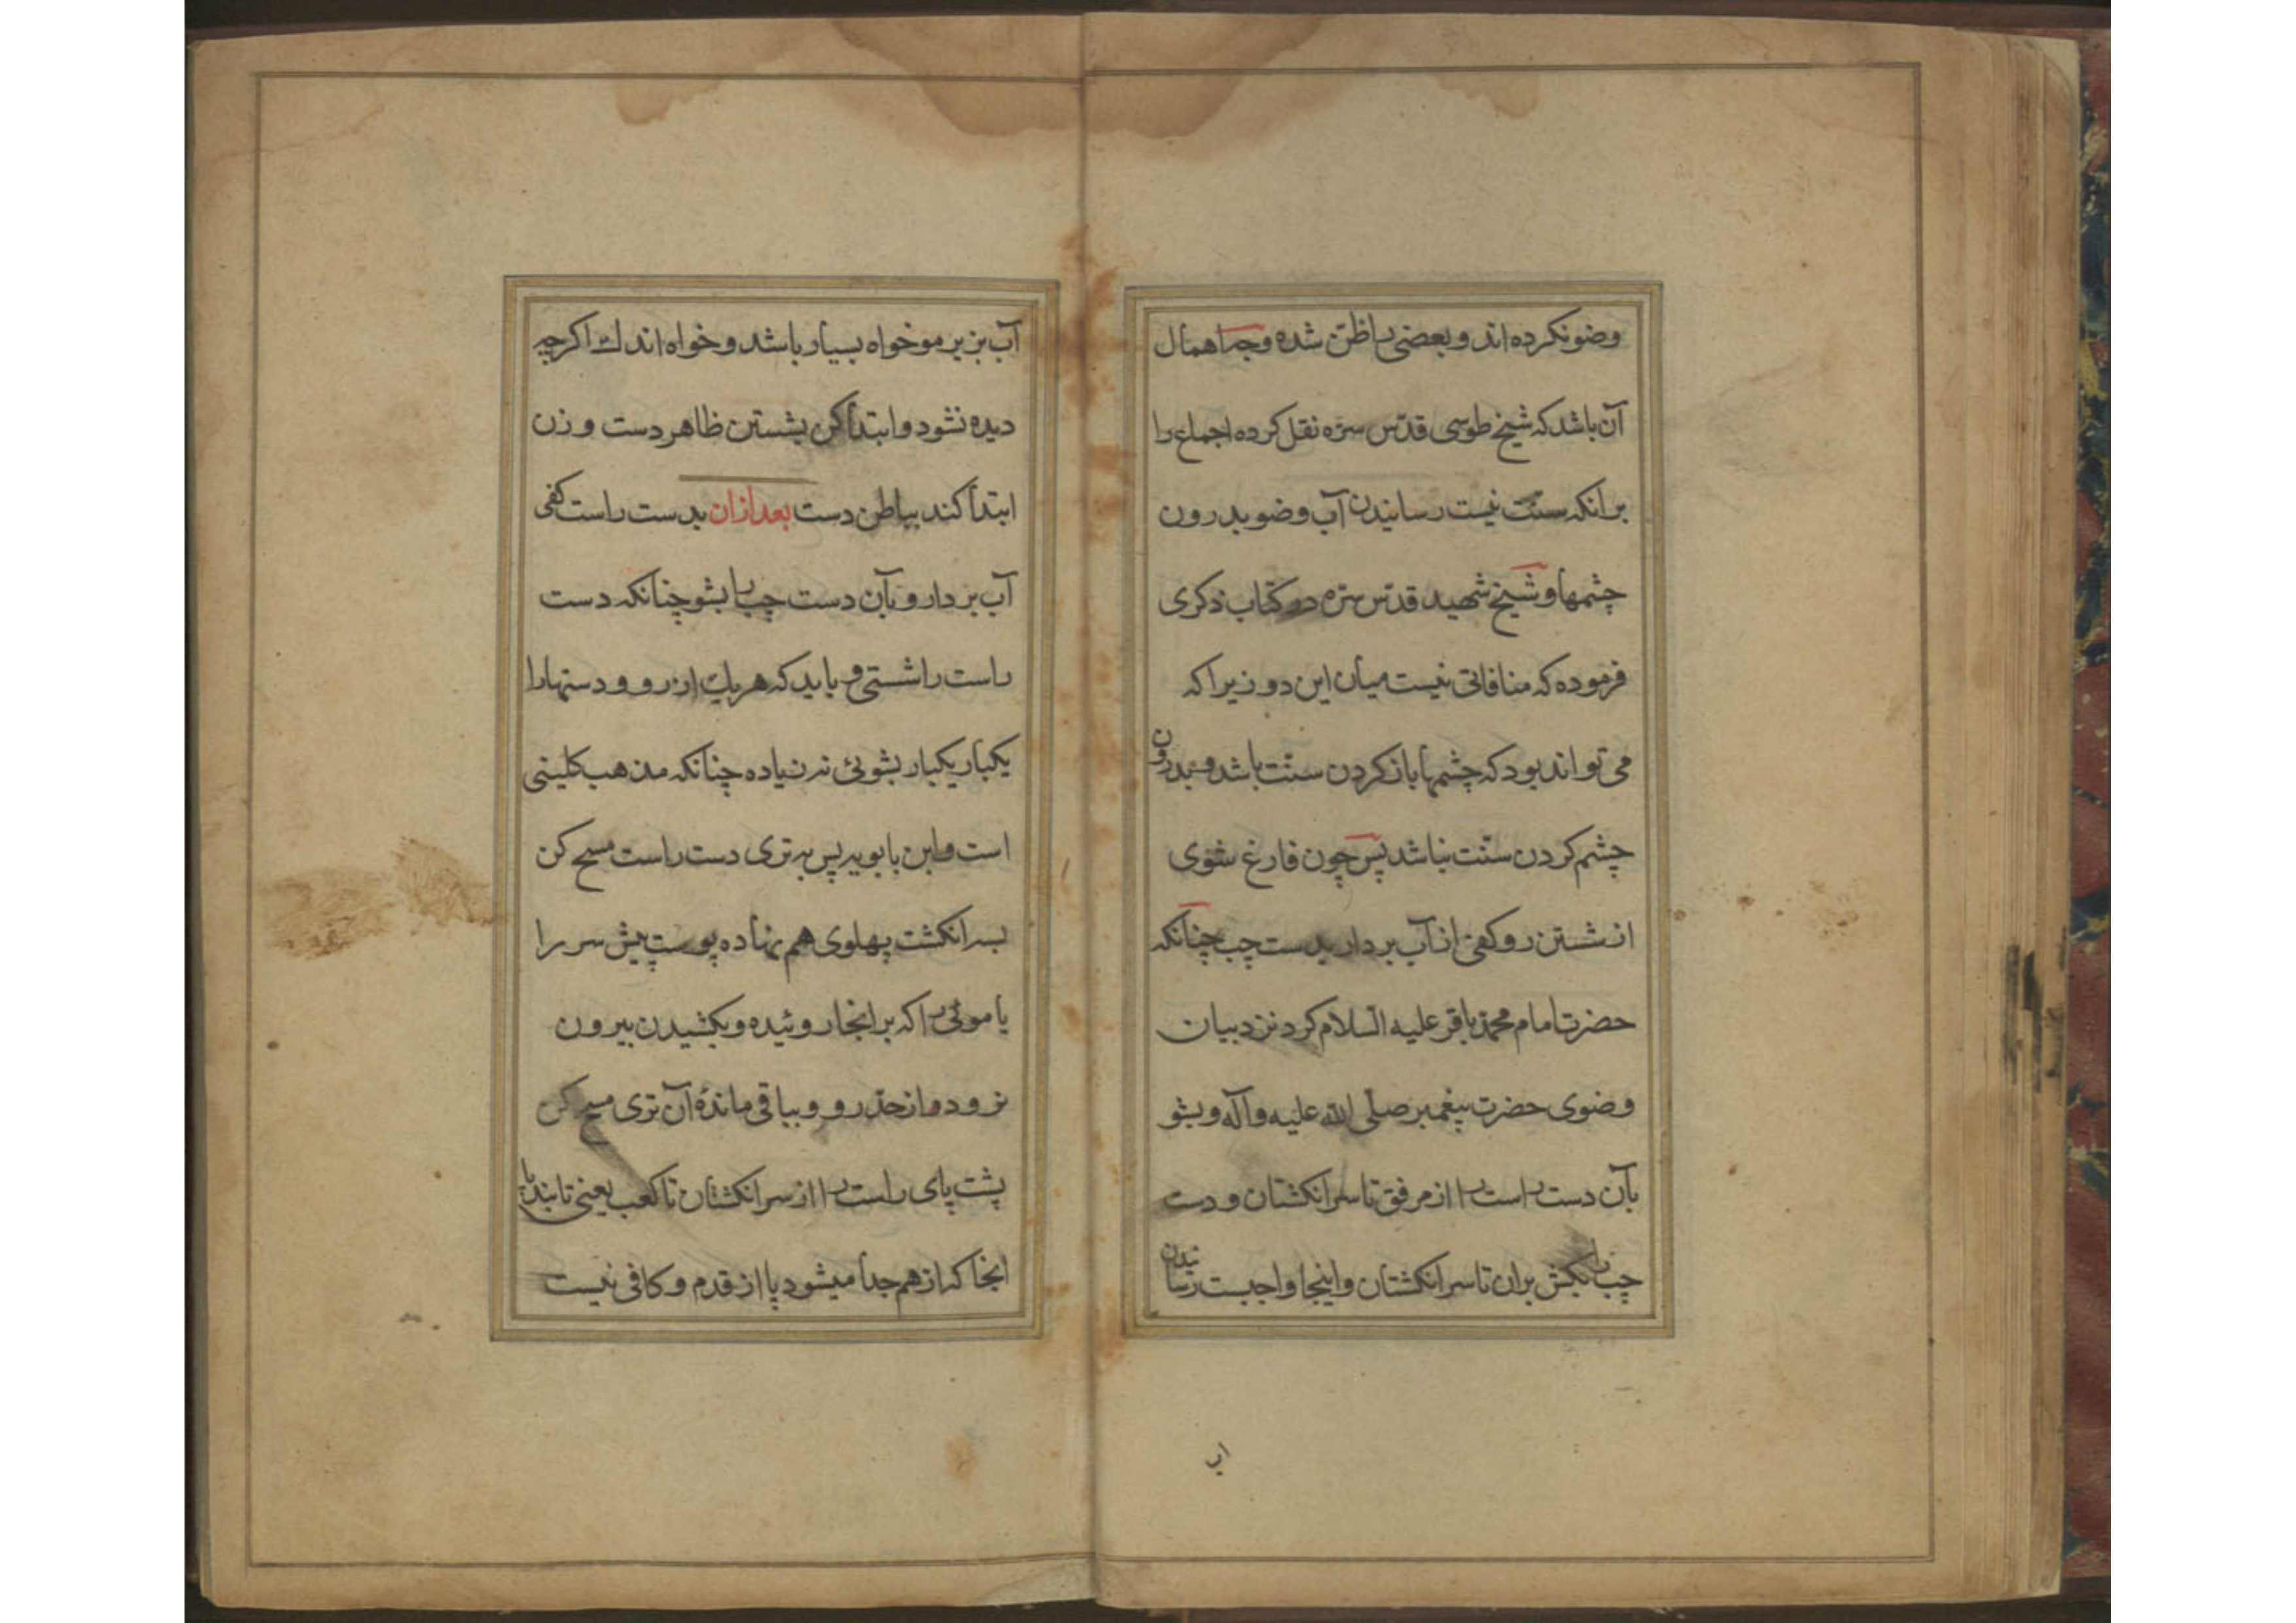 وضو نکرده اند و بعضی را ظن شده وجه اهمال
آن باشد که شیخ طوسی قدّس سرّه نقل کرده اجماع را
برانکه سنّت نیست رسانیدن آب وضو بدرون
چشمها و شیخ شهید قدّس سرّه در کتاب ذکری
فرموده که منافاتی نیست میان این دو زیرا که
می تواند بود که چشمها باز کردن سنّت باشد و بدرون
چشم کردن سنّت نباشد پس چون فارغ شوی
از شستن رو کفی از آب بردار بدست چب چنانکه
حضرت امام محمّد باقر علیه السلام کرد نزد بیان
وضوی حضرت پیغمبر صلّی الله علیه وآله و بشو
بآن دست راست را از مرفق تا سر انکشتان و دست
چب را بکش بران تا سر انکشتان و اینجا واجبست رسانیدن
اب
آب بزیر مو خواه بسیار باشد و خواه اندک اکرچه
دیده نشود و ابتدا کن بشستن ظاهر دست و زن
ابتدا کند بباطن دست بعد ازان بدست راست کفی
آب بردار و بآن دست چب را بشو چنانکه دست
راست را شستی و باید که هر یک از رو و دستها را
یکبار یکبار بشوئی نه زیاده چنانکه مذهب کلینی
است و ابن بابویه پس به تری دست راست مسح کن
بسه انکشت پهلوی هم نهاده پوست پیش سر را
یا موئی را که بر انجا روئیده و بکشیدن بیرون
نرود از حدّ رو و بباقی ماندهٔ آن تری مسح کن
پشت پای راست را از سر انکشتان تا کعب یعنی تا بند پا
انجا که از هم جدا میشود پا از قدم و کافی نیست